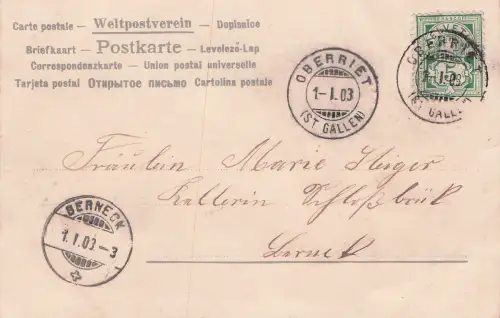 Carte postale — Weltpostverein — Dopisnice
Briefkaart — Postkarte — Levelező-Lap
Correspondenzkarte — Union postal universelle
Tarjeta postal Открытое письмо Cartolina postale
HELVETIA
OBERRIET
1-I.03
(ST GALLEN)
OBERRIET
1-I-03
(ST GALLEN)
Fräulein Marie Steiger
Kellerin Schloßbrück
Berneck
BERNECK
1.I.03-3